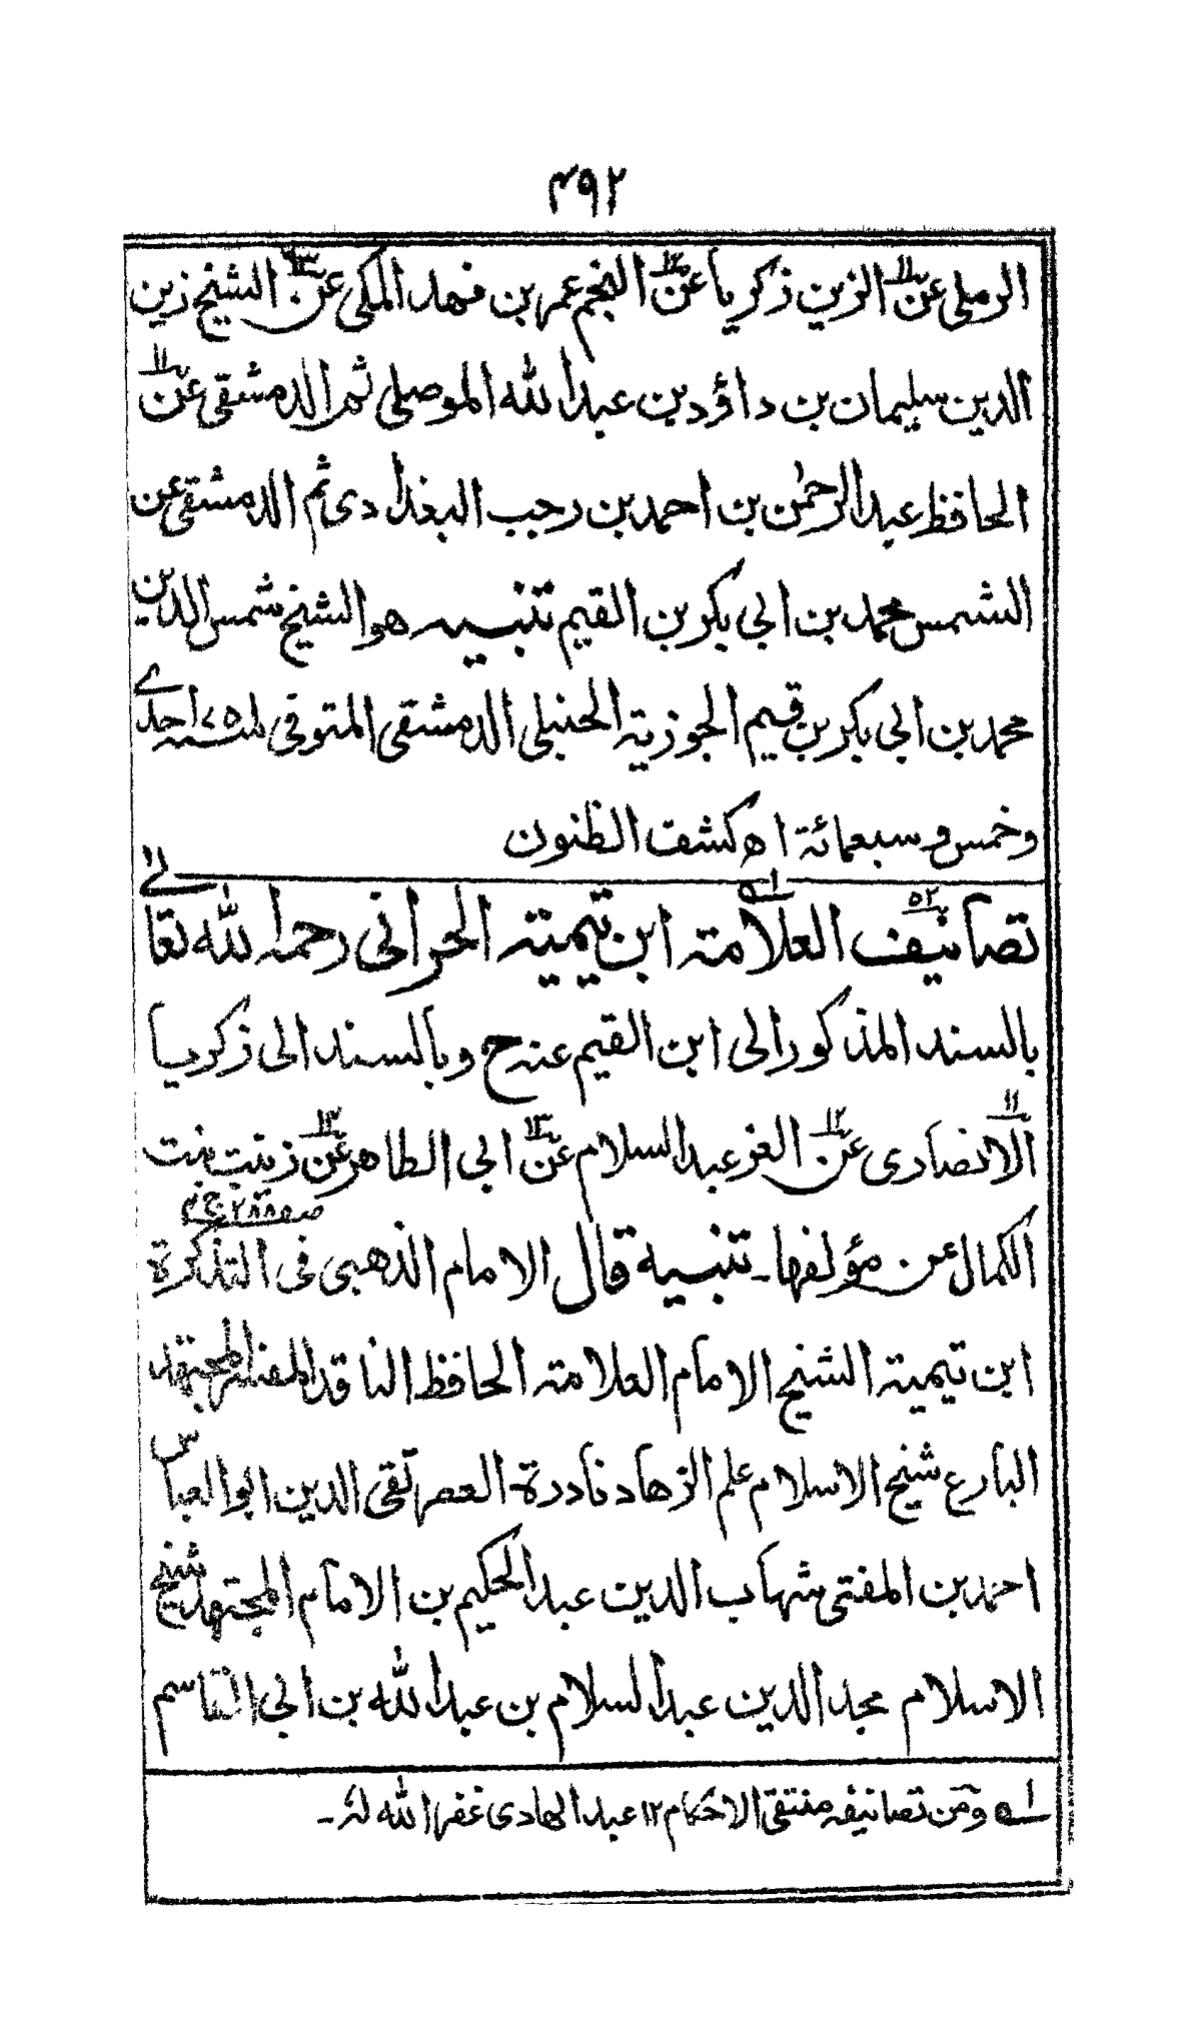 ٤٩٢
الرملى عن الزين زكريا عن النجم عمر بن فهد المكى عن الشيخ زين
الدين سليمان بن داؤد بن عبد الله الموصلى ثم الدمشقى عن
الحافظ عبد الرحمٰن بن احمد بن رجب البغدادى ثم الدمشقى عن
الشمس محمد بن ابى بكر بن القيم تنبيه هو الشيخ شمس الدين
محمد بن ابى بكر بن قيم الجوزية الحنبلى الدمشقى المتوفى سنة ٧٥١ احدى
وخمس وسبعمائة اھ كشف الظنون
تصانيف العلامة ابن تيمية الحرانى رحمه الله تعالى
بالسند المذكور الى ابن القيم عنه ح وبالسند الى زكريا
الانصارى عن العز عبد السلام عن ابى الطاهر عن زينب بنت
الكمال عن مؤلفها۔ تنبيه قال الامام الذهبى فى التذكرة صفحة ٢٨٨ ج ٤
ابن تيمية الشيخ الامام العلامة الحافظ الناقد المفسر المجتهد
البارع شيخ الاسلام علم الزهاد نادرة العصر تقى الدين ابو العباس
احمد بن المفتى شهاب الدين عبد الحكيم بن الامام المجتهد شيخ
الاسلام مجد الدين عبد السلام بن عبد الله بن ابى القاسم
لـه ومن تصانيفه منتقى الاحكام ١٢ عبد الهادى غفر الله له۔